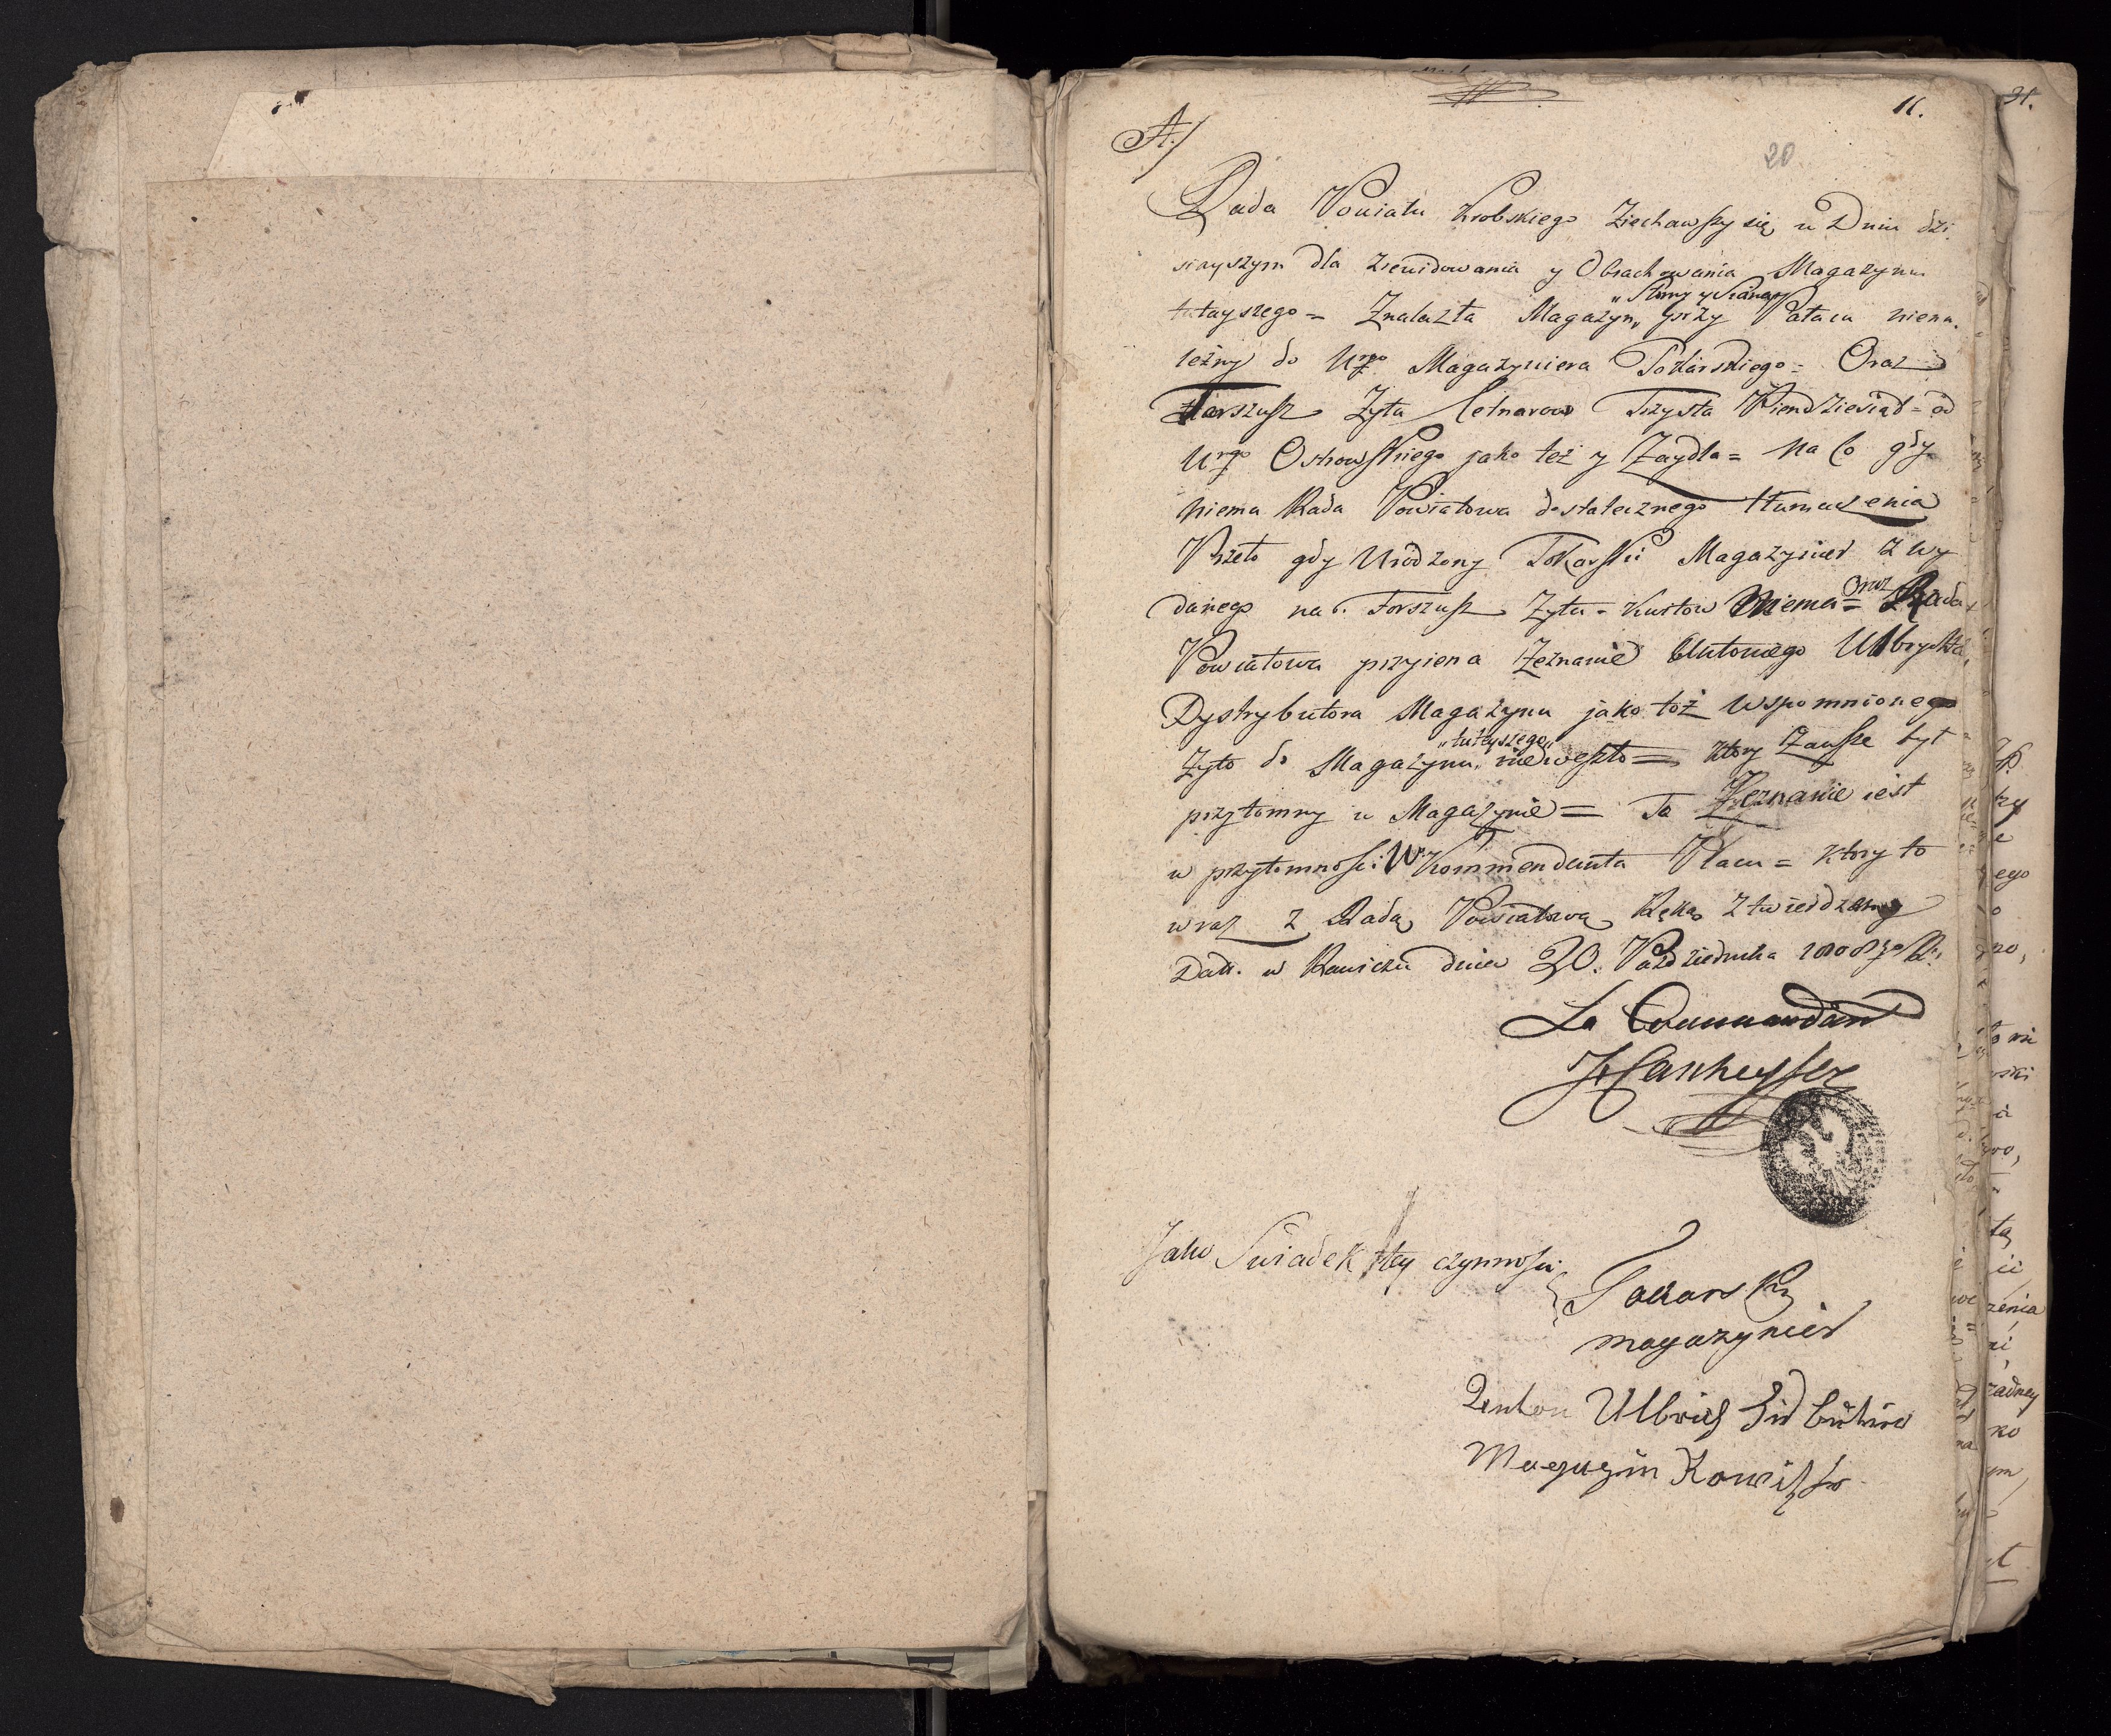 11.
A./
20
Rada Powiatu Krobskiego Ziechawszy się w Dniu dzi
sieyszym dla zrewidowania y Obrachowania Magazynu
"Słomy y Siana"
tutayszego = Znalazła Magazyn, przy Pałacu niena
leżny do Urgo Magazyniera Tokarskiego = Oraz
Forszusz Zyta Cetnarow Trzysta Piendziesiąt = od
Urgo Ostrowskiego jako też y Zaydla = Na Co gdy
niema Rada Powiatowa dostatecznego tłumaczenia
Przeto gdy Urodzony Tokarski Magazynier z wy
danego na Forszusz Zyta = Kwitow Niema = Oraz Rada
Powiatowa przyiena Zeznanie Antoniego Ulbrychta
Dystrybutora Magazynu jako toż wspomnionego
"tutayszego"
Zyto do Magazynu nieweszło = Ktory Zawsze był
przytomny w Magazynie = To Zeznanie iest
w przytomności W. Kommendanta Placu = ktory to
wraz z Radą Powiatową Ręką ztwierdzamy
Datt. w Rawiczu dnia 20. Października 1808go
Le Commandant
Jako Swiadek tey czynnosci
Tokarski
magazynier
Anton Ulbrich
Magazin